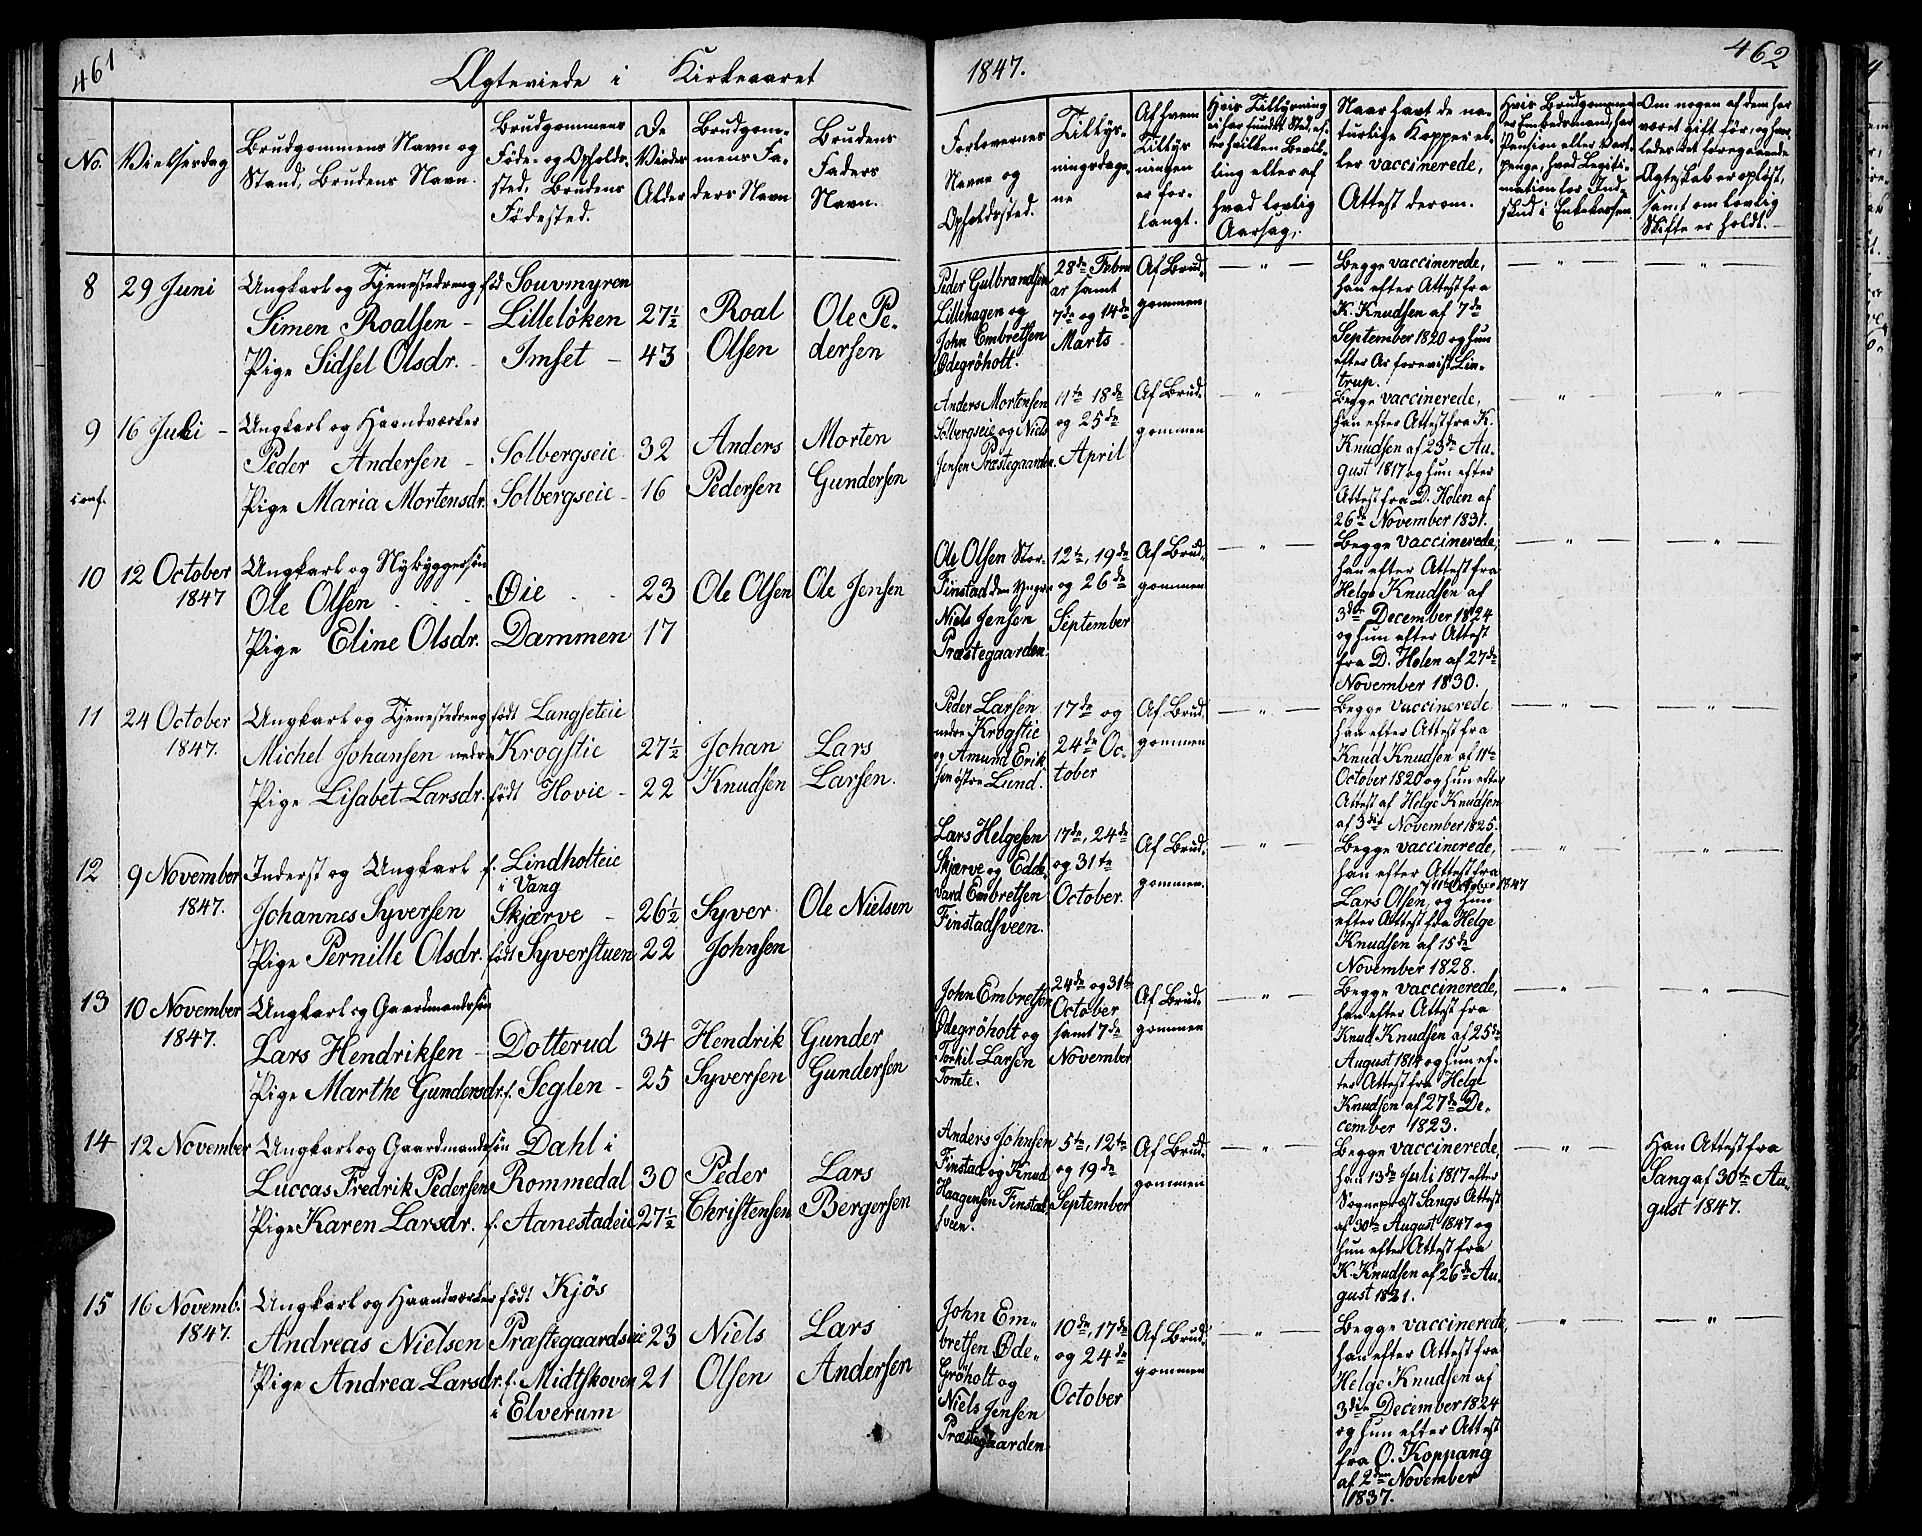 461
Ægteviede i Kirkeaaret
No.
Vielsesdag
Brudgommens Navn og
Stand, Brudens Navn.
Brudgommens
Føde- og Opholds-
sted, Brudens
Fødested.
De
Vieder
Alder
Brudgom-
mens Fa-
ders Navn
Brudens
Faders
Navn.
8
29 Juni
Ungkarl og Tjenestedreng
Simen Roalsen -
Pige Sidsel Olsdr. -
fød Souvmyren
Lilleløken
Imset -
27½
43
Roal
Olsen
Ole Pe-
dersen
9
16 Juli -
Ungkarl og Haandværker
Peder Andersen -
Pige Maria Mortensdr.
Solbergseie
Solbergseie -
32
16
Anders
Pedersen
Morten
Gundersen
10
12 October
1847
Ungkarl og Nybyggersøn
Ole Olsen
Pige Eline Olsdr.
Øie
Dammen
23
17
Ole Olsen
Ole Jensen
11
24 October
1847.
Ungkarl og Tjenestedreng
Michel Johansen nedre
Pige Lisabet Larsdr.
født Langseteie
Krogstie
født Hovie -
27½
22
Johan
Knudsen
Lars
Larsen.
12
9 November
1847.
Inderst og Ungkarl
Johannes Syversen
Pige Pernille Olsdr.
f. Lindholteie
i Vang
Skjærve -
født Syverstuen
26½
22
Syver
Johnsen
Ole Nielsen
13
10 November
1847.
Ungkarl og Gaardmandssøn
Lars Hendriksen -
Pige Marthe Gundersdr.
Dotterud
f. Seglen -
34
25
Hendrik
Syversen
Gunder
Gundersen
14
12 November
Ungkarl og Gaardmandssøn
Luccas Fredrik Pedersen
Pige Karen Larsdr.
Dahl i
Rommedal
f. Aanestadeie
30
27½
Peder
Christensen
Lars
Bergersen
15
16 Novemb.
1847.
Ungkarl og Haandværker
Andreas Nielsen
Pige Andrea Larsdr.
født Kjøs
Præstegaardseie
f. Midtskoven
i Elverum
23
21
Niels
Olsen
Lars
Andersen
1847.
462
Forlovernes
Navne og
Opholdssted.
Tillys-
ningsdage-
ne
Af hvem
Tillys
ningen
er for-
langt.
Hvis Tillysning
ei har fundet Sted, ef-
ter hvilken Bevil-
ling eller af
hvad lovlig
Aarsag.
Naar havt de na-
turlige Kopper el-
ler vaccinerede,
Attest derom.
Hvis Brudgommen
er Embedsmand, har
Pension eller Vart-
penge, hvad Legiti-
mation for Ind-
skud i Enkekassen.
Om nogen af dem har
været gift før, og hvor-
ledes det foregaaende
Ægteskab er opløst,
samt om lovlig
Skifte er holdt.
Peder Gulbrandsen
Lillehagen og
John Embretsen
Ødegrøholt.
28de Febru
ar samt
7de og 14de
Marts
Af Brud-
gommen
Begge vaccinerede,
han efter Attest fra
K. Knudsen af 7de
September 1820 og hun
efter
trup.
Anders Mortensen
Solbergseie og Niels
Jensen Præstegaarden.
11te 18de
og 25de
April
Af Brud-
gommen
Begge vaccinerede,
han efter Attest fra K.
Knudsen af 23de Au-
gust 1817 og hun efter
Attest fra D. Holen af
26de November 1831.
Ole Olsen Stor-
Finstad den yngre
Niels Jensen
Præstegaarden.
12te, 19de
og 26de
September
Af Brud-
gommen
Begge vaccinerede,
han efter Attest fra
Helge Knudsen af
3die December 1824
og hun efter Attest
fra D. Holen af 27de
November 1830.
Peder Larsen
nedre Krogstie
og Amund Erik-
sen østre Lund.
17de og
24de Oc-
tober
Af Brud
gommen
Begge vaccinerede
han efter Attest fra
Knud Knudsen af 11te
October 1820 og hun efter
Attest af Helge Knudsen
af 3die November 1825.
Lars Helgesen
Skjærve og Ed-
vard Embretsen
Finstadsveen.
17de, 24de
og 31te
October.
Af Brud-
gommen.
Begge vaccinerede,
han efter Attest fra
Lars Olsen, og hun
efter Attest fra Helge
Knudsen af 15de
November 1828.
John Embretsen
Ødegrøholt og
Torkil Larsen
Tomte.
24de og 31te
October
samt 7de
November
Af Brud-
gommen
Begge vaccinerede,
han efter Attest fra
Knud Knudsen af 25de
August 1814 og hun ef-
ter Attest fra Helge
Knudsen af 27de De-
cember 1823.
Anders Johnsen
Finstad og Knud
Haagensen Finstad-
sveen.
5te, 12te
og 19de
September
Af Brud-
gommen
Begge vaccinerede,
han 13de Juli 1817 efter
Sogneprest Sangs Attest
af 30te August 1847 og
hun efter Attest fra
K. Knudsen af 26de Au-
gust 1821.
Han Attest fra
Sang af 30te Au-
gust 1847.
John Em-
bretsen Øde-
Grøholt og
Niels Jensen
Præstegaarden
10de, 17de
og 24de
October
Af Brud-
gommen
Begge vaccinerede,
han efter Attest fra
Helge Knudsen af
3die December 1824
og hun efter Attest
fra O. Koppang
af 2den November
1837.